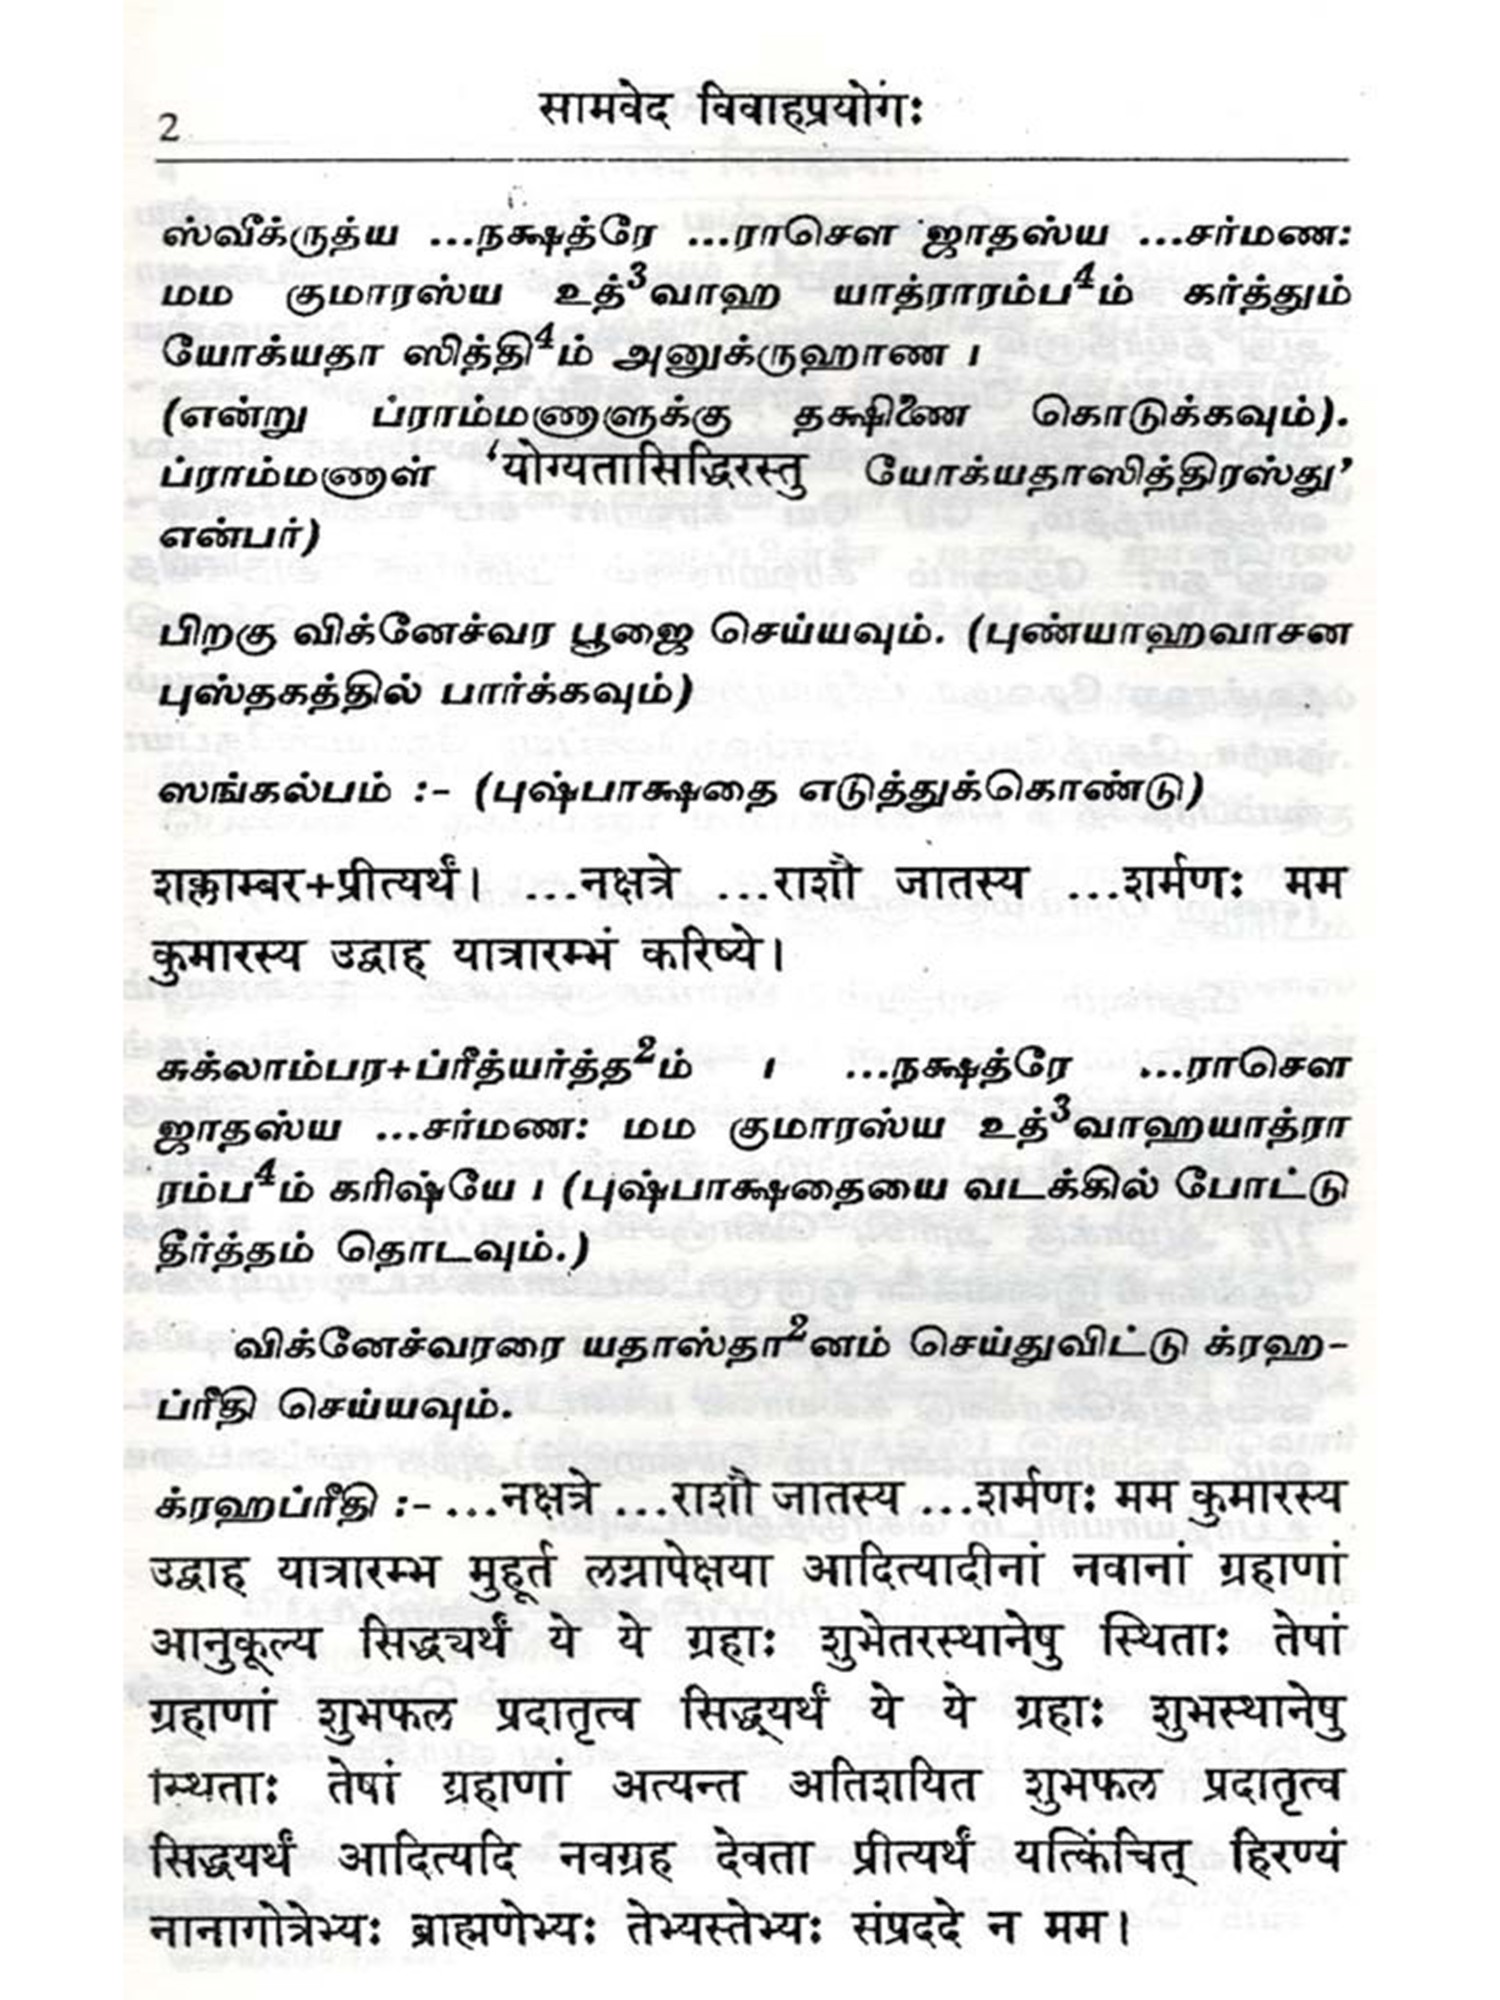 2
सामवेद विवाहप्रयोगः
ஸ்வீக்ருத்ய ...நக்ஷத்ரே ...ராசௌ ஜாதஸ்ய ...சர்மண:
மம குமாரஸ்ய உத்³வாஹ யாத்ராரம்ப⁴ம் கர்த்தும்
யோக்யதா ஸித்தி⁴ம் அனுக்ருஹாண ।
(என்று ப்ராம்மணாளுக்கு தக்ஷிணை கொடுக்கவும்).
ப்ராம்மணாள் ‘योग्यतासिद्धिरस्तु யோக்யதாஸித்திரஸ்து’
என்பர்)
பிறகு விக்னேச்வர பூஜை செய்யவும். (புண்யாஹவாசன
புஸ்தகத்தில் பார்க்கவும்)
ஸங்கல்பம் :- (புஷ்பாக்ஷதை எடுத்துக்கொண்டு)
शक्लाम्बर+प्रीत्यर्थं। ...नक्षत्रे ...राशौ जातस्य ...शर्मणः मम
कुमारस्य उद्वाह यात्रारम्भं करिष्ये।
சுக்லாம்பர+ப்ரீத்யர்த்த²ம் । ...நக்ஷத்ரே ...ராசௌ
ஜாதஸ்ய ...சர்மண: மம குமாரஸ்ய உத்³வாஹயாத்ரா
ரம்ப⁴ம் கரிஷ்யே । (புஷ்பாக்ஷதையை வடக்கில் போட்டு
தீர்த்தம் தொடவும்.)
விக்னேச்வரரை யதாஸ்தா²னம் செய்துவிட்டு க்ரஹ-
ப்ரீதி செய்யவும்.
க்ரஹப்ரீதி :- ...नक्षत्रे ...राशौ जातस्य ...शर्मणः मम कुमारस्य
उद्वाह यात्रारम्भ मुहूर्त लग्नापेक्षया आदित्यादीनां नवानां ग्रहाणां
आनुकूल्य सिद्ध्यर्थं ये ये ग्रहाः शुभेतरस्थानेषु स्थिताः तेषां
ग्रहाणां शुभफल प्रदातृत्व सिद्ध्यर्थं ये ये ग्रहाः शुभस्थानेषु
स्थिताः तेषां ग्रहाणां अत्यन्त अतिशयित शुभफल प्रदातृत्व
सिद्धयर्थं आदित्यदि नवग्रह देवता प्रीत्यर्थं यत्किंचित् हिरण्यं
नानागोत्रेभ्यः ब्राह्मणेभ्यः तेभ्यस्तेभ्यः संप्रददे न मम।